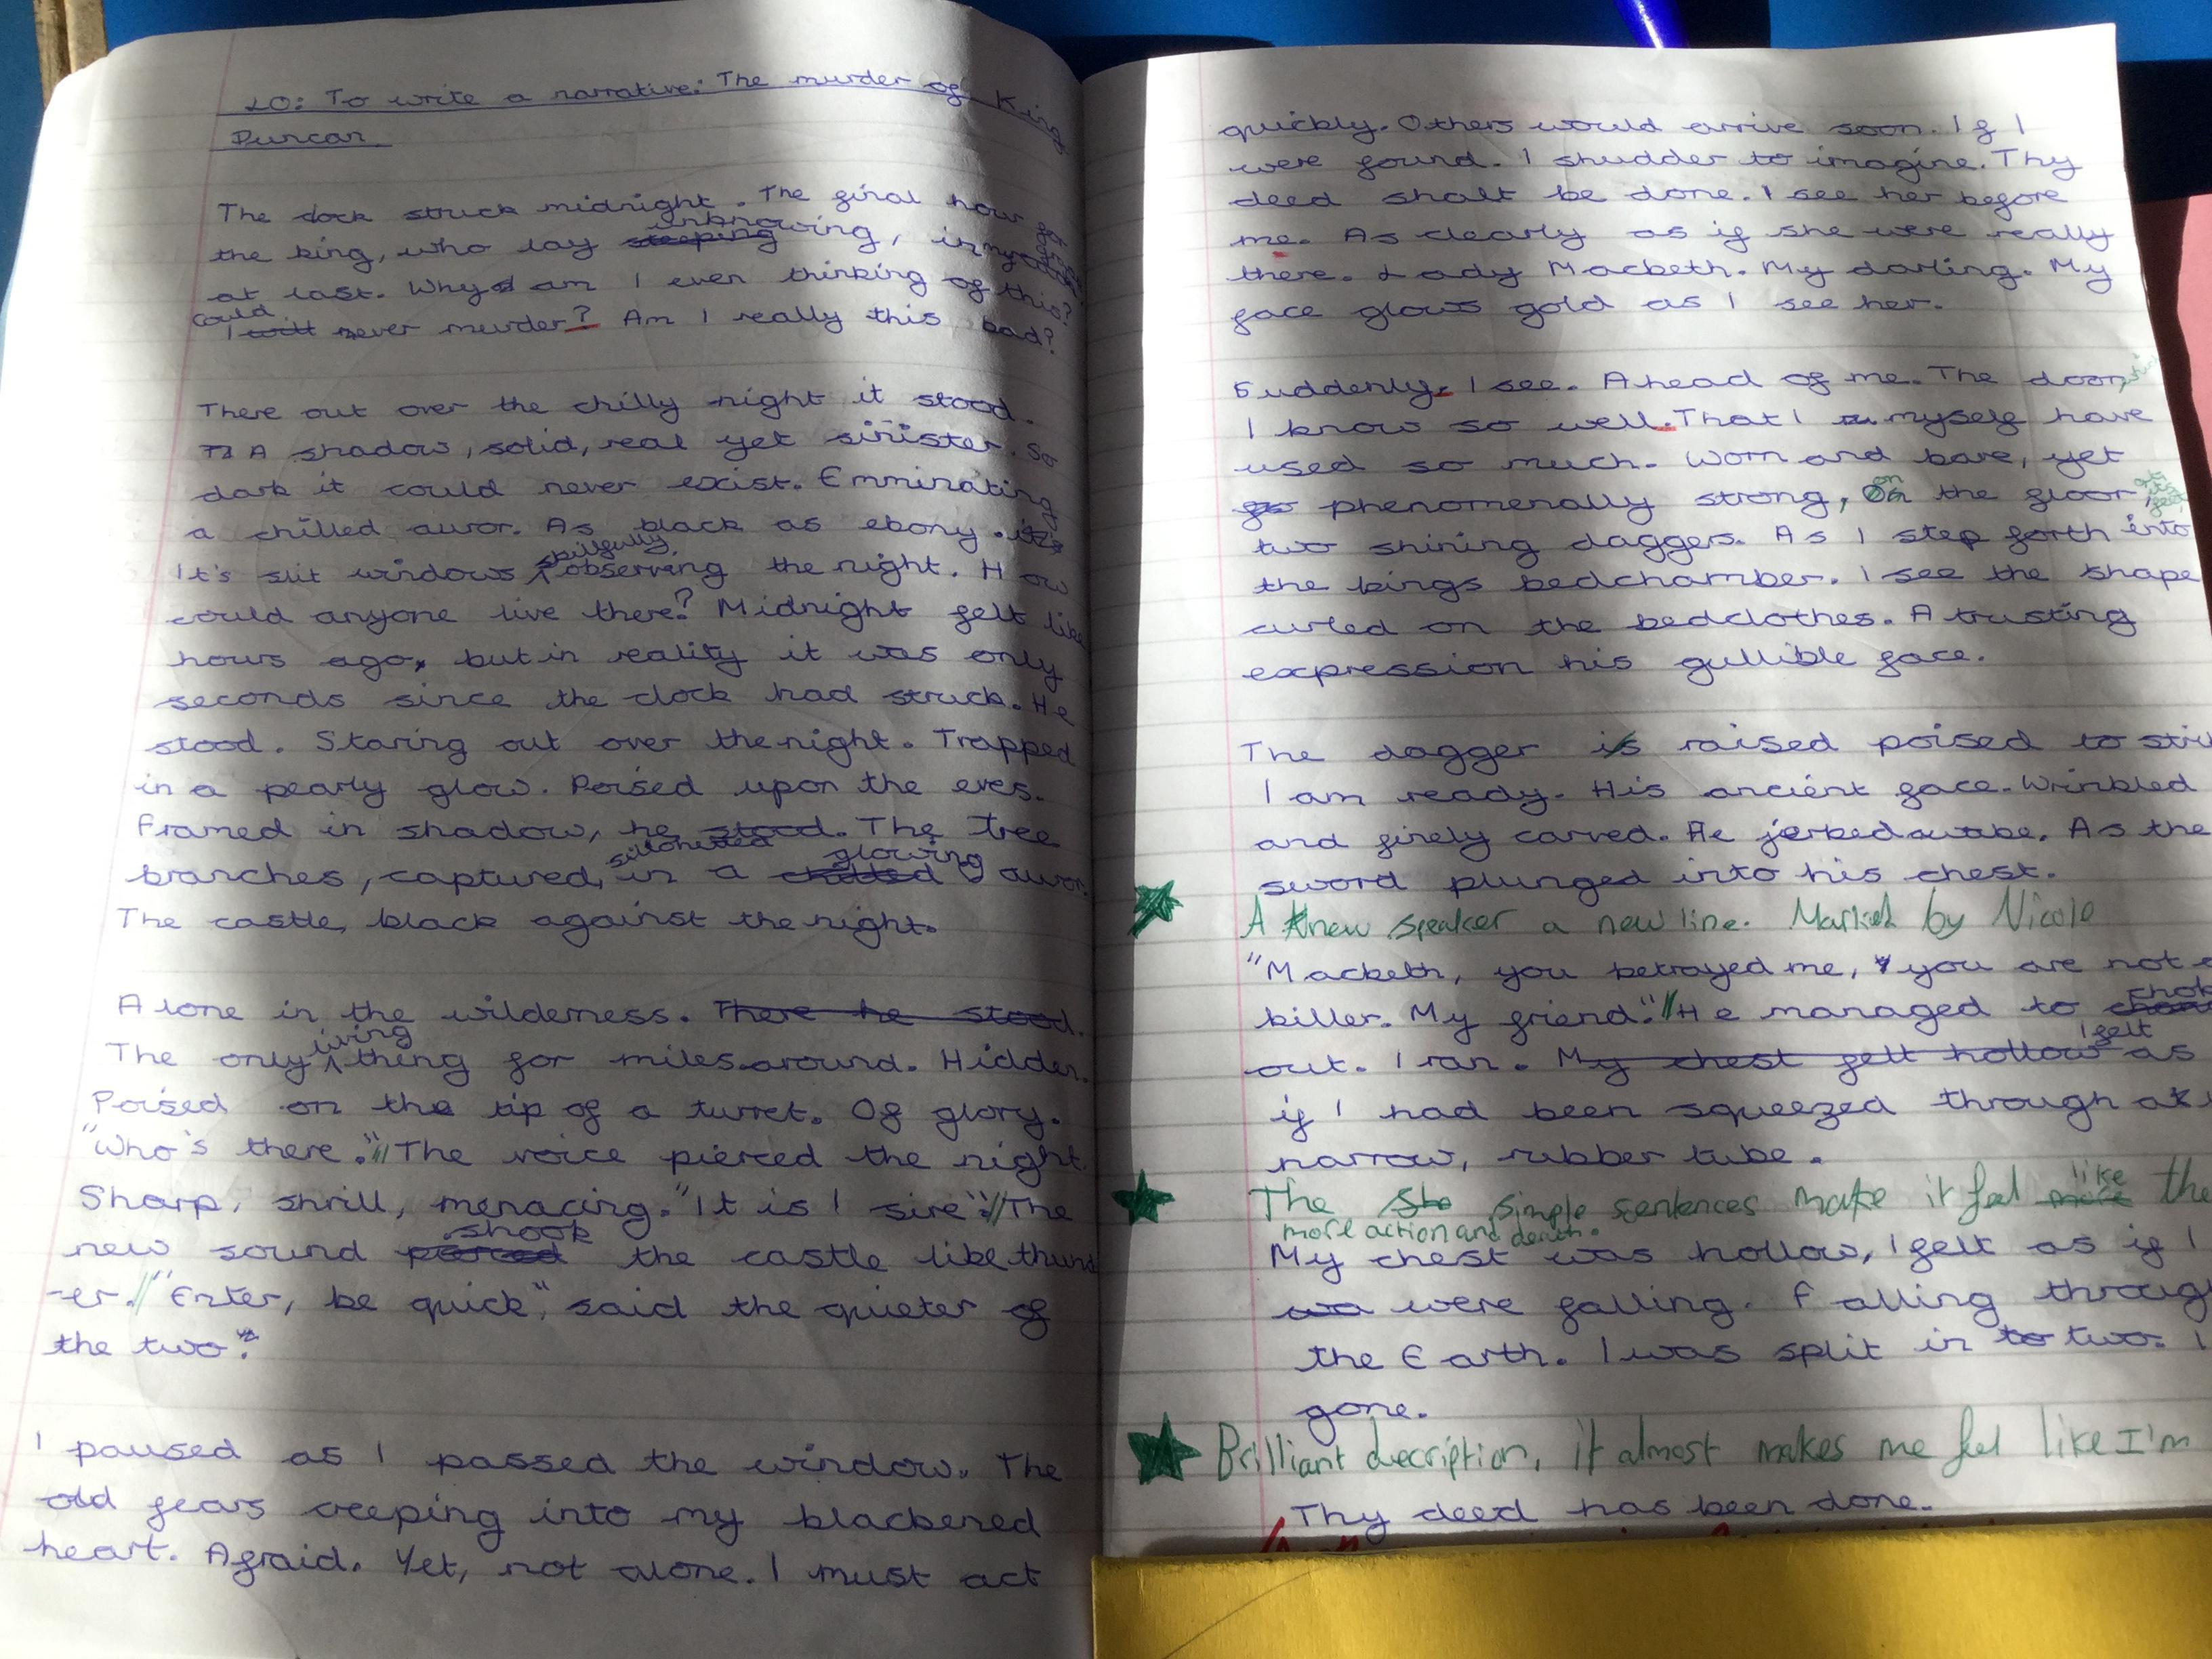 LO: To write a narrative: The murder of King
Duncan
The clock struck midnight. The final hour
the king, who lay sleeping unknowing,
at last. Why am I even thinking of this?
I will could never murder? Am I really this bad?
There out over the chilly night it stood.
A shadow, solid, real yet sinister. So
dark it could never exist. Emminating
a chilled auror. As black as ebony. it's
It's slit windows skillfully observing the night. How
could anyone live there? Midnight felt like
hours ago, but in reality it was only
seconds since the clock had struck. He
stood. Staring out over the night. Trapped
in a pearly glow. Poised upon the eves.
Framed in shadow, he stood. The tree
branches, captured, silohetted in a chilled glowing auror.
The castle, black against the night.
Alone in the wilderness. There he stood.
The only living thing for miles around. Hidden.
Poised on the tip of a turret. Of glory.
"Who's there." // The voice pierced the night
Sharp, shrill, menacing. "It is I sire". // The
new sound pierced shook the castle like thund
-er. // "Enter, be quick", said the quieter of
the two."
I paused as I passed the window. The
old fears creeping into my blackened
heart. Afraid. Yet, not alone. I must act
quickly. Others would arrive soon. If I
were found. I shudder to imagine. Thy
deed shalt be done. I see her before
me. As clearly as if she were really
there. Lady Macbeth. My darling. My
face glows gold as I see her.
Suddenly, I see. Ahead of me. The door,
I know so well. That I myself have
used so much. Worn and bare, yet
phenomenally strong, on the floor
two shining daggers. As I step forth into
the kings bedchamber. I see the shape
curled on the bedclothes. A trusting
expression his gullible face.
The dagger is raised poised to
I am ready. His ancient face. Wrinkled
and finely carved. He jerked awake. As the
sword plunged into his chest.
A new speaker a new line. Marked by Nicole
"Macbeth, you betrayed me, you are not
killer. My friend." // He managed to
out. I ran. My chest felt hollow I felt as
if I had been squeezed through a
narrow, rubber tube.
The simple sentences make it feel more like
more action and death.
My chest was hollow, I felt as if I
were falling. Falling through
the Earth. I was split in to two. I
gone.
Brilliant decription, it almost makes me feel like I'm
Thy deed has been done.